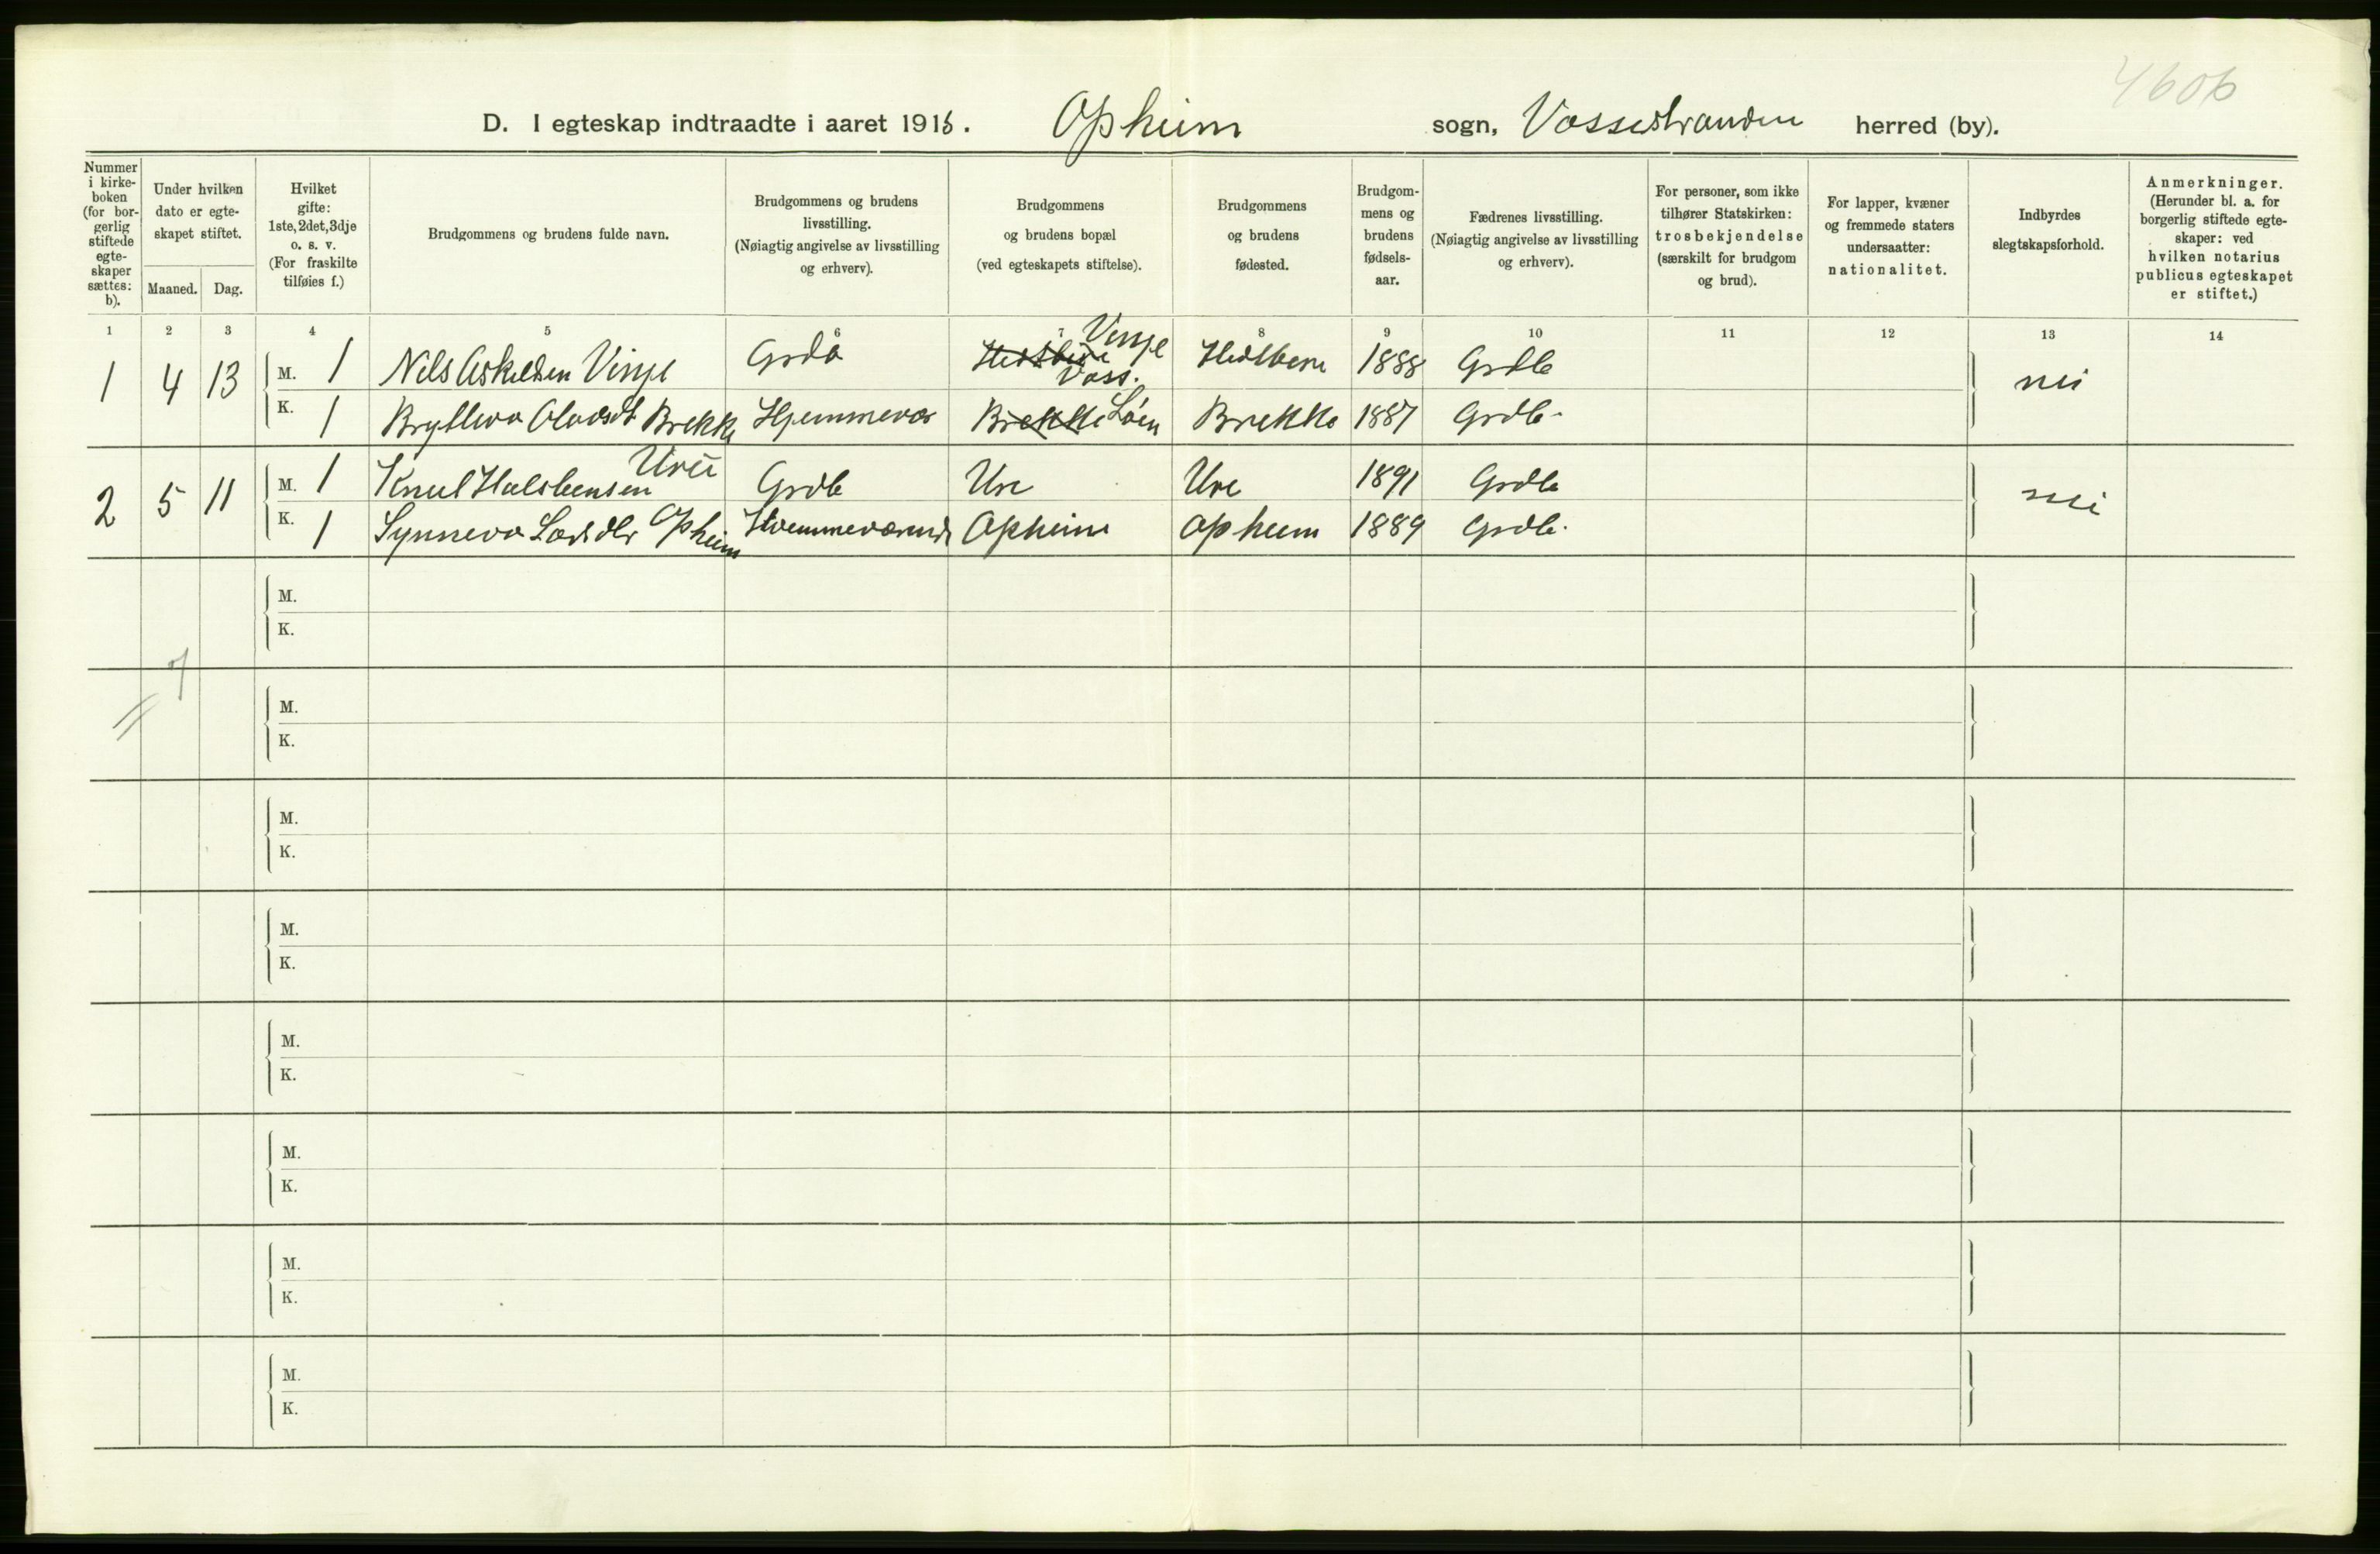 4606
D. I egteskap indtraadte i aaret 1915. Opheim sogn, Vossestranden herred (by).
Nummer i kirkeboken (for borgerlig stiftede egteskaper sættes: b).
Under hvilken dato er egteskapet stiftet.
Maaned. Dag.
Hvilket gifte: 1ste, 2det, 3dje o. s. v. (For fraskilte tilføies f.)
Brudgommens og brudens fulde navn.
Brudgommens og brudens livsstilling. (Nøiagtig angivelse av livsstilling og erhverv).
Brudgommens og brudens bopæl (ved egteskapets stiftelse).
Brudgommens og brudens fødested.
Brudgommens og brudens fødselsaar.
Fædrenes livsstilling. (Nøiagtig angivelse av livsstilling og erhverv).
For personer, som ikke tilhører Statskirken: trosbekjendelse (særskilt for brudgom og brud).
For lapper, kvæner og fremmede staters undersaatter: nationalitet.
Indbyrdes slegtskapsforhold.
Anmerkninger. (Herunder bl. a. for borgerlig stiftede egteskaper: ved hvilken notarius publicus egteskapet er stiftet.)
1 2 3 4 5 6 7 8 9 10 11 12 13 14
1 4 13 M. 1 Nils Askeldsen Vinje Grdb Vinje Voss. 1888 Grdb nei
K. 1 Brytteva Olavsdt Brekke Hjemmevær Brekke Løen Brekke 1887 Grdb.
2 5 11 M. 1 Knut Halstensen Ure Grdb Ure Ure 1891 Grdb nei
K. 1 Synneva Larsdtr Opheim Hjemmeværende Opheim Opheim 1889 Grdb.
M.
K.
M.
K.
M.
K.
M.
K.
M.
K.
M.
K.
M.
K.
M.
K.